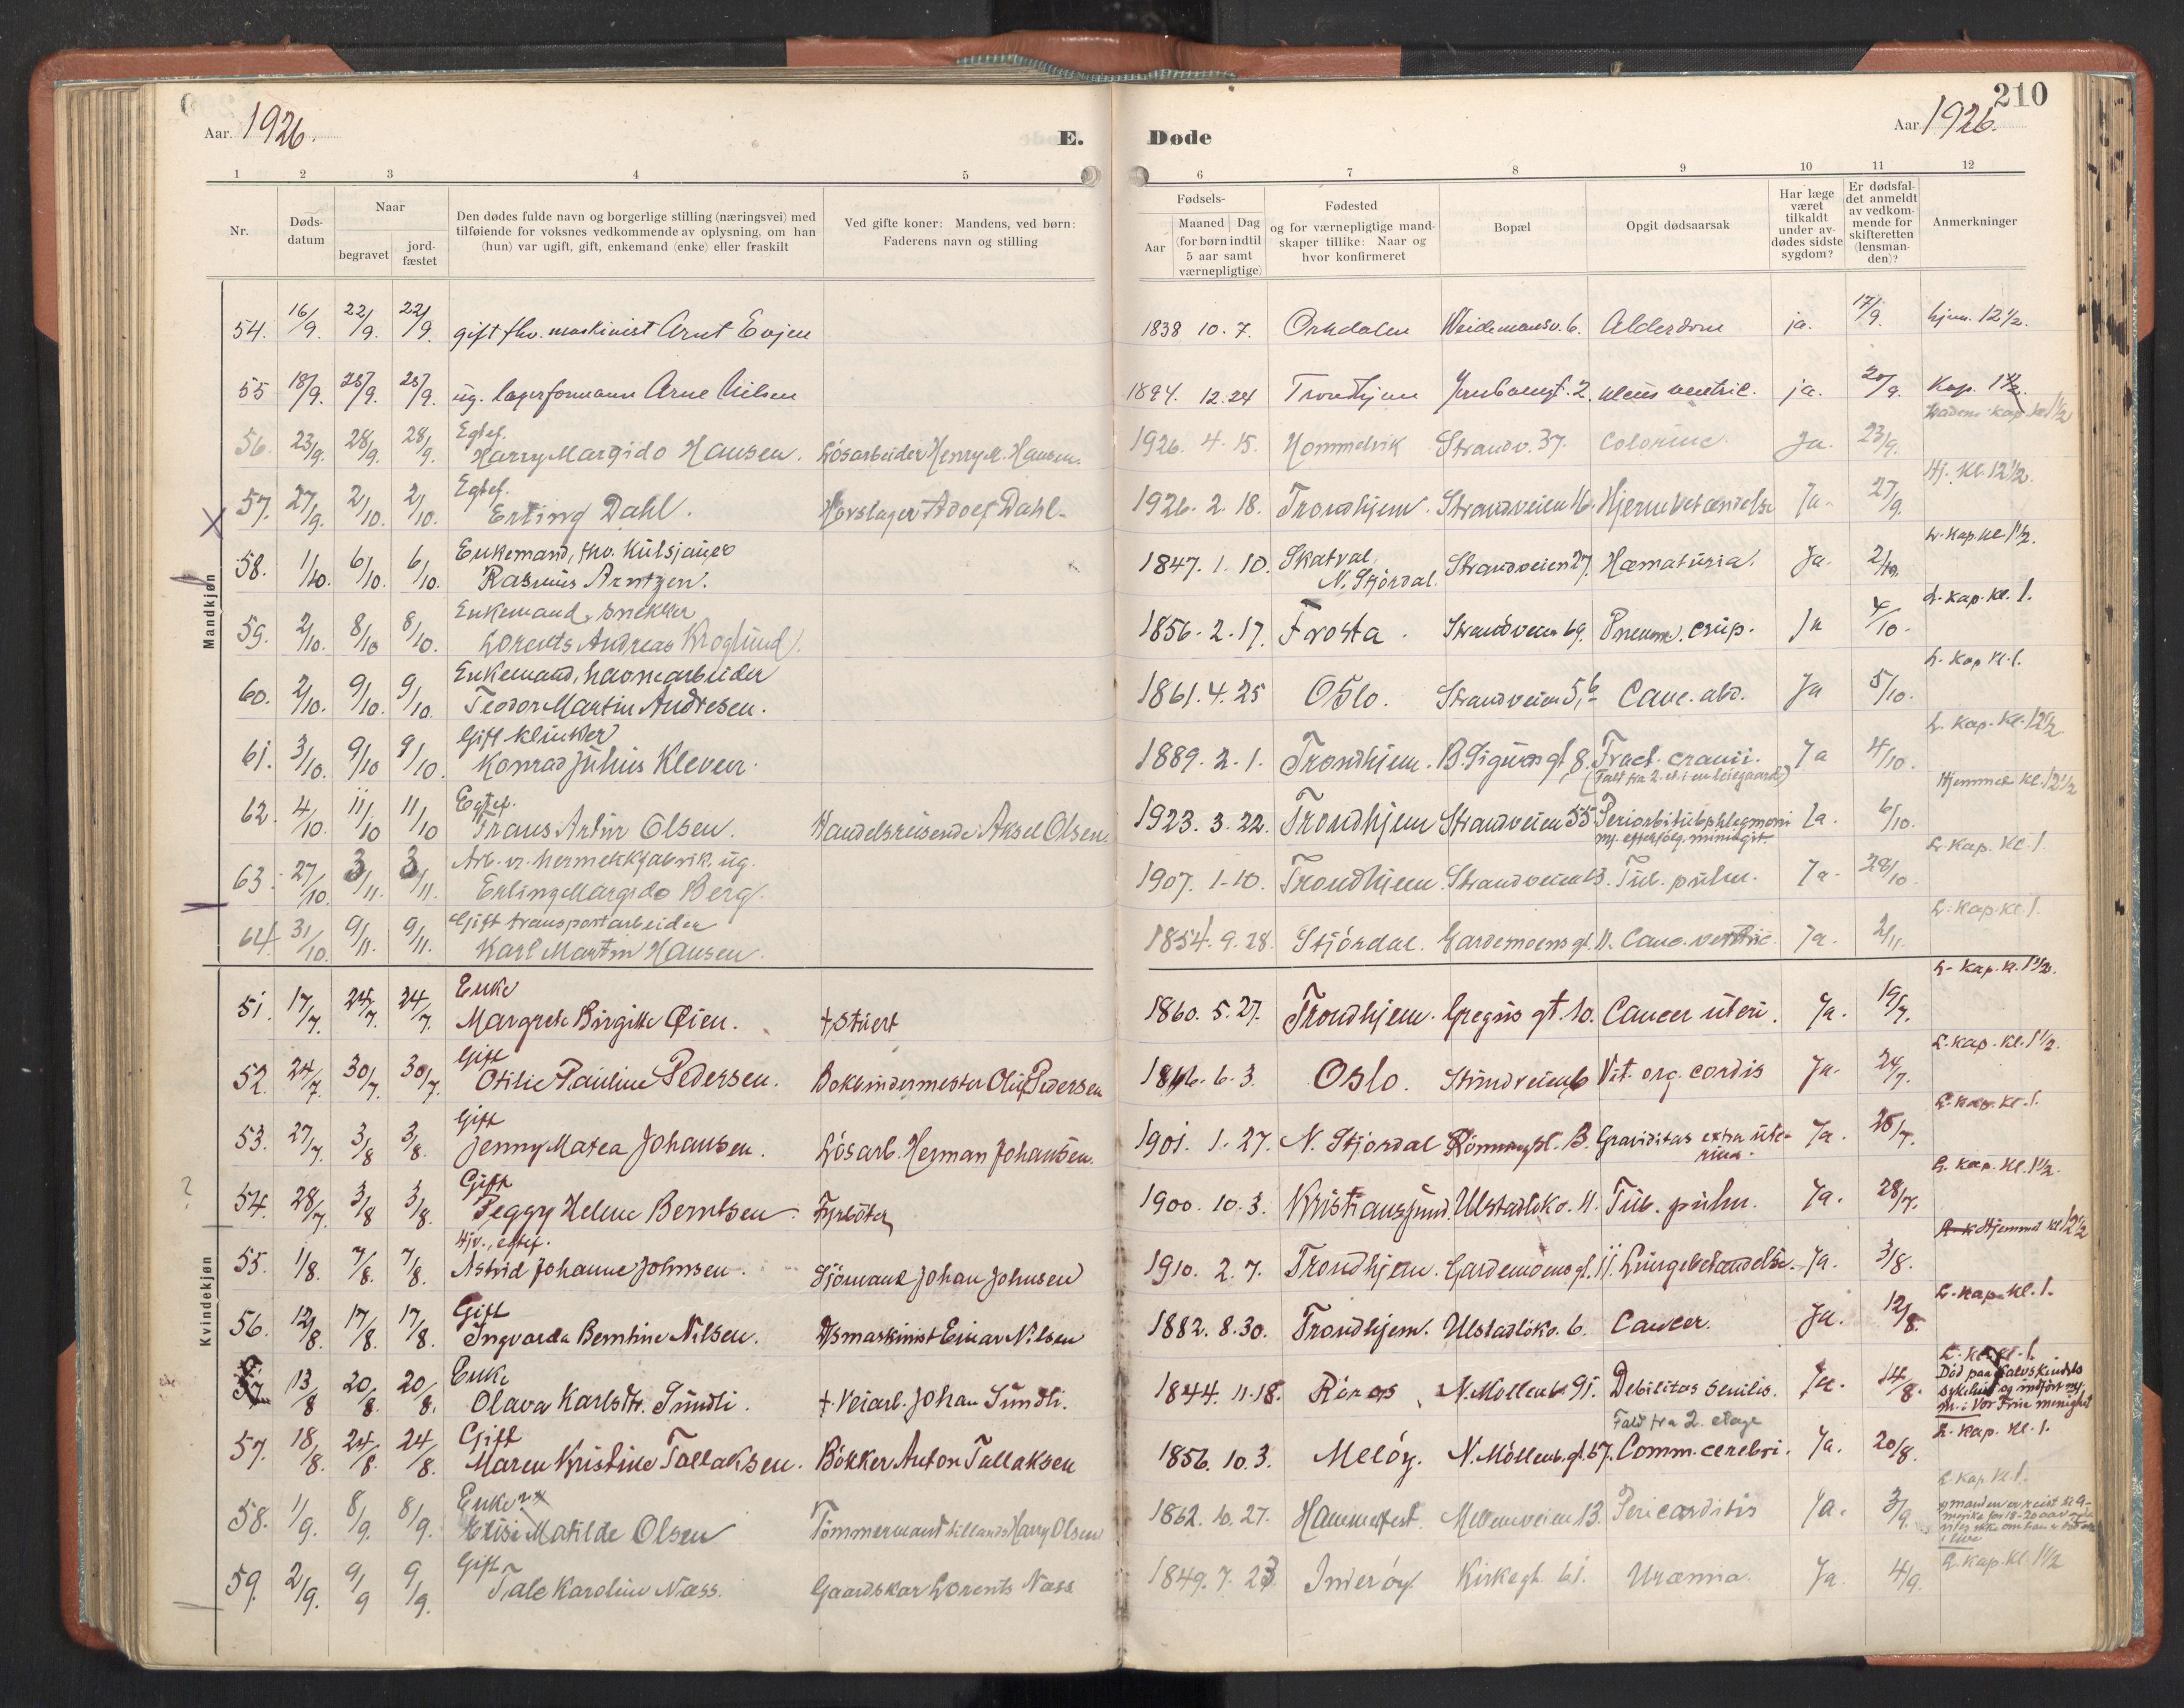 210
Aar 1926.
E. Døde
Aar 1926.
1 2 3 4 5 6 7 8 9 10 11 12
Nr.
Døds-
datum
Naar
begravet
jord-
fæstet
Den dødes fulde navn og borgerlige stilling (næringsvei) med
tilføiende for voksnes vedkommende av oplysning, om han
(hun) var ugift, gift, enkemand (enke) eller fraskilt
Ved gifte koner: Mandens, ved børn:
Faderens navn og stilling
Fødsels-
Aar
Maaned Dag
(for børn indtil
5 aar samt
værnepligtige)
Fødested
og for værnepligtige mand-
skaper tillike: Naar og
hvor konfirmeret
Bopæl
Opgit dødsaarsak
Har læge
været
tilkaldt
under av-
dødes sidste
sygdom?
Er dødsfal-
det anmeldt
av vedkom-
mende for
skifteretten
(lensman-
den)?
Anmerkninger
Mandkjøn
54. 16/9. 22/9. 22/9. gift fhv. maskinist Arnt Evjen 1838 10. 7. Orkdalen Weidemansv. 6. Alderdom ja. 17/9. hjem. 12 1/2.
55 18/9. 25/9. 25/9. ug. lagerformann Arne Nilsen 1894. 12. 24 Trondhjem Jernbanegt. 2. ulcus ventric. ja. 20/9. Kap.
Ladem. kap. kl. 1 1/2
56. 23/9. 28/9. 28/9. Egtef.
Harry Margido Hansen. Løsarbeider Henry M. Hansen. 1926. 4. 15. Hommelvik Strandv. 37. Colerine. Ja. 23/9.
Hj. kl. 12 1/2.
57. 27/9. 2/10. 2/10. Egtef.
Erling Dahl. Hovslager Adolf Dahl. 1926. 2. 18. Trondhjem. Strandveien 16. Hjernebetændelse Ja. 27/9.
L. kap. kl 1 1/2.
58. 1/10. 6/10. 6/10. Enkemand, fhv. Kulsjauer
Rasmus Arntzen. 1847. 1. 10. Skatval, Strandveien 27. Hæmaturia. Ja. 2/10.
N. Stjørdal.
L. kap. kl. 1.
59. 2/10. 8/10 8/10. Enkemand, snekker
Lorents Andreas Kroglund. 1856. 2. 17. Frosta. Strandveien 69. Pneum. crup. Ja 4/10.
L. kap kl. 1.
60. 2/10. 9/10. 9/10. Enkemand, havnearbeider
Teodor Martin Andresen. 1861. 4. 25 Oslo. Strandveien 5,b Canc. abd. Ja 5/10.
L. kap. kl. 12 1/2
61. 3/10. 9/10 9/10. Gift klinker
Konrad Julius Kleven. 1889. 2. 1. Trondhjem. B. Sigurds gt. 8. Fract. cranii. Ja 4/10.
(Falt fra 2. et. i en leiegaard)
Hjemmet kl. 12 1/2
62. 4/10. 11/10 11/10 Egtef.
Frans Artur Olsen. Handelsreisende Aksel Olsen. 1923. 3. 22. Trondhjem Strandveien 55 Periorbitubphlegmoni Ja. 6/10.
m. efterfølg. miningit.
L. kap. kl. 1.
63. 27/10. 3/11. 3/11. Arb. v. hermetikfabrik. ug.
Erling Margido Berg. 1907. 1. 10. Trondhjem. Strandveien 13. Tub. pulm. Ja. 28/10
L. kap. kl. 1.
64. 31/10. 9/11. 9/11. Gift transportarbeider
Karl Martin Hansen. 1854. 9. 28. Stjørdal. Gardemoens gt. 11. Canc. ventric. Ja. 2/11.
Kvindekjøn
L. kap. kl. 1 1/2.
51. 17/7. 24/7. 24/7. Enke
Margrete Birgitte Øien. † Stuert 1860. 5. 27. Trondhjem. Gregus gt. 10. Cancer uteri. Ja. 19/7.
L. kap. kl. 1 1/2.
52. 24/7. 30/7. 30/7. Gift
Otilie Pauline Pedersen. Bokbindermester Oluf Pedersen 6. 3. Oslo. Strindveien 6 Vit. org. cordis Ja. 24/7.
L. kap. kl. 1.
53. 27/7. 3/8 3/8. Gift
Jenny Matea Johansen. Løsarb. Herman Johansen. 1901. 1. 27. N. Stjørdal B. Graviditas extra ute- Ja. 28/7.
rina.
L. kap. kl. 1 1/2.
? 54. 28/7. 3/8 3/8. Gift
Peggy Helene Berntsen Fyrbøter 1900. 10. 3. Kristiansund. Ulstadløkv. 11. Tub. pulm. Ja. 28/7.
Hjemmet kl 12 1/2
55. 1/8. 7/8. 7/8. Hjv., egtef.
Astrid Johanne Johnsen. Sjømand Johan Johnsen 1910. 2. 7. Trondhjem. Gardemoens gt. 11. Lungebetændelse. Ja. 3/8.
L. kap. kl. 1.
56. 12/8. 17/8. 17/8. Gift
Ingvarda Berntine Nilsen. Dsmaskinist Einar Nilsen 1882. 8. 30. Trondhjem. Ulstadløkv. 6. Cancer. Ja. 12/8.
L. kl. 1.
57. 13/8 20/8. 20/8. Enke
Olava Karlsdtr. Sundli. † Veiarb. Johan Sundli. 1844. 11. 18. Røros N. Møllenb. 91. Debilitas senilis. Ja. 14/8. Død paa Kalvskindets
sykehus og indført
m. i Vor Frue menighet
L. kap. kl. 1.
57. 18/8. 24/8. 24/8. Gift
Maren Kristine Tallaksen. Bøkker Anton Tallaksen 1856. 10. 3. Meløy. N. Møllenb. gt. 57. Fald fra 2. etage
Comm. cerebri. Ja. 20/8.
L. kap. kl. 1.
58. 1/9. 8/9. 8/9. Enke
Elise Matilde Olsen Tømmermand Harry Olsen 1862. 10. 27. Hammerfest. Mellemveien 13. Pericarditis Ja. 3/9. manden er reist til A-
merika for 18-20 aar
ikke om han er
i live
L. kap. kl. 1 1/2
59. 2/9. 9/9 9/9. Gift
Tale Karoline Næss. Gaardskar Lorents Næss 1849. 7. 23 Inderøy. Kirkegt. 61. Uræmia. Ja. 4/9.